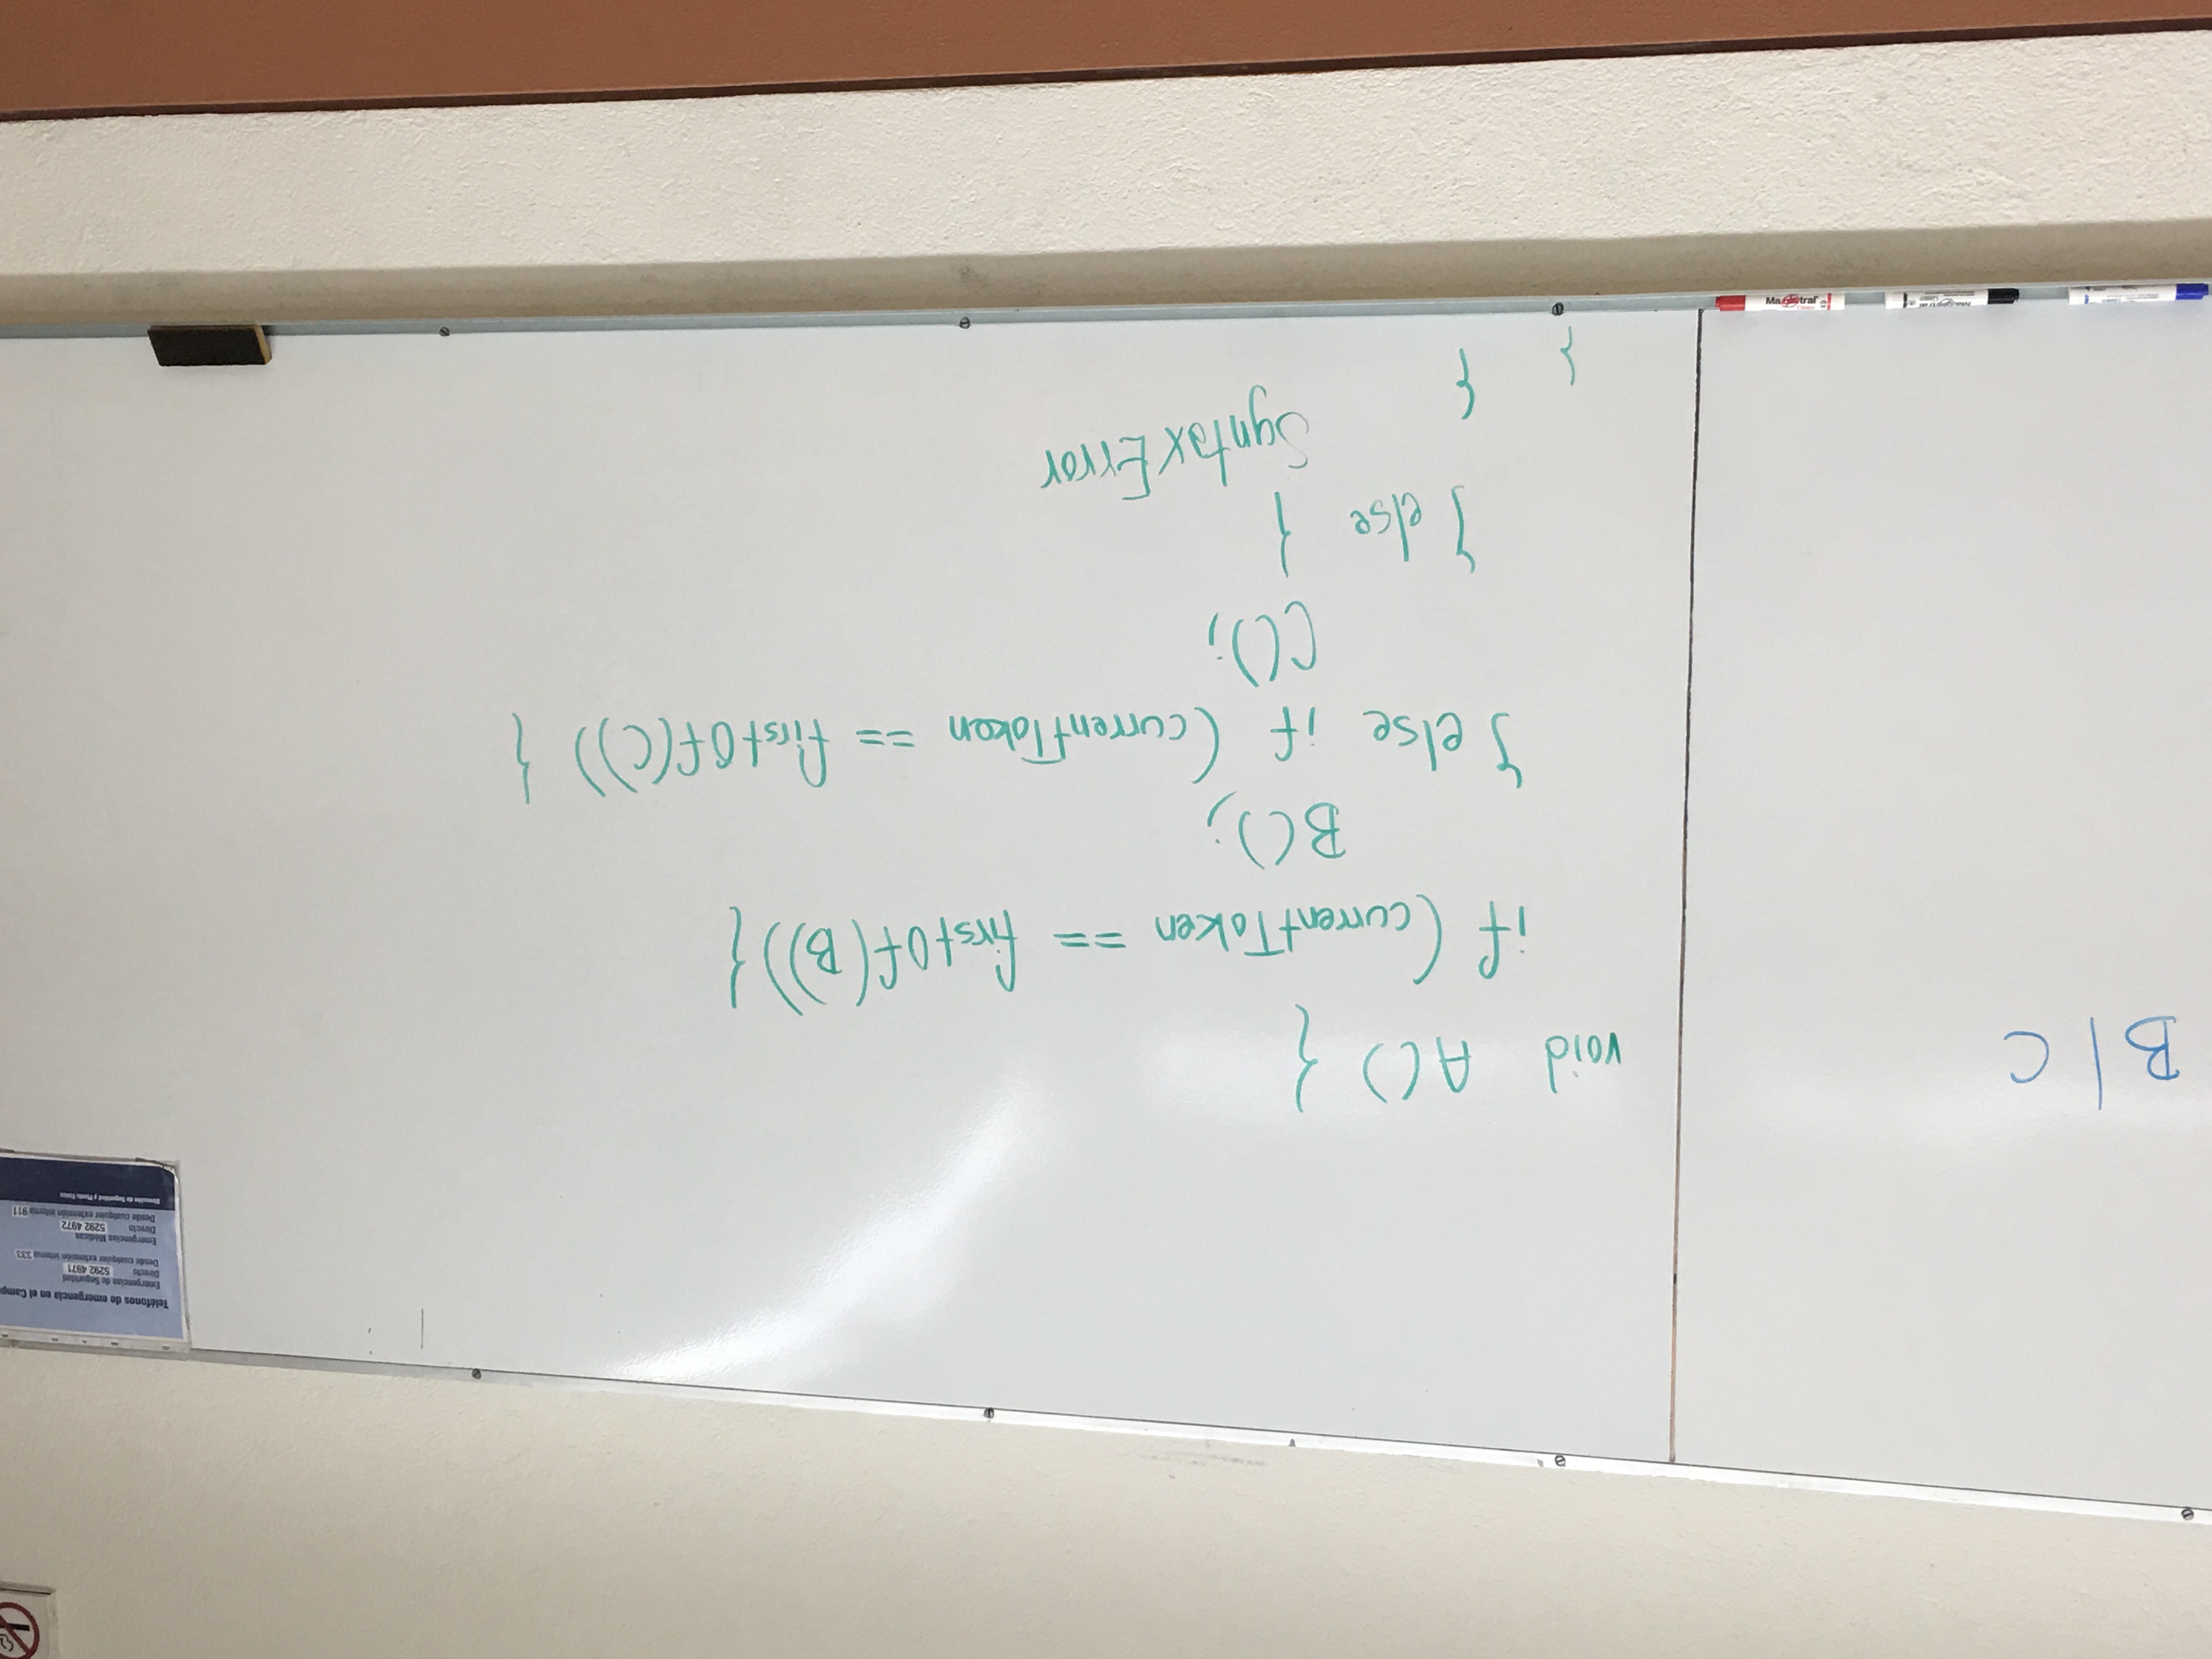 B | C
void A() {
if (currentToken == firstOf(B)){
B();
} else if (currentToken == firstOf(C)) {
C();
} else {
SyntaxError
} {
Teléfonos de emergencia en el Camp
Emergencias de Seguridad
Directo 5292 4971
Desde cualquier extensión interna 333
Emergencias Médicas
Directo 5292 4972
Desde cualquier extensión interna 911
Dirección de Seguridad y Planta Física
Magistral